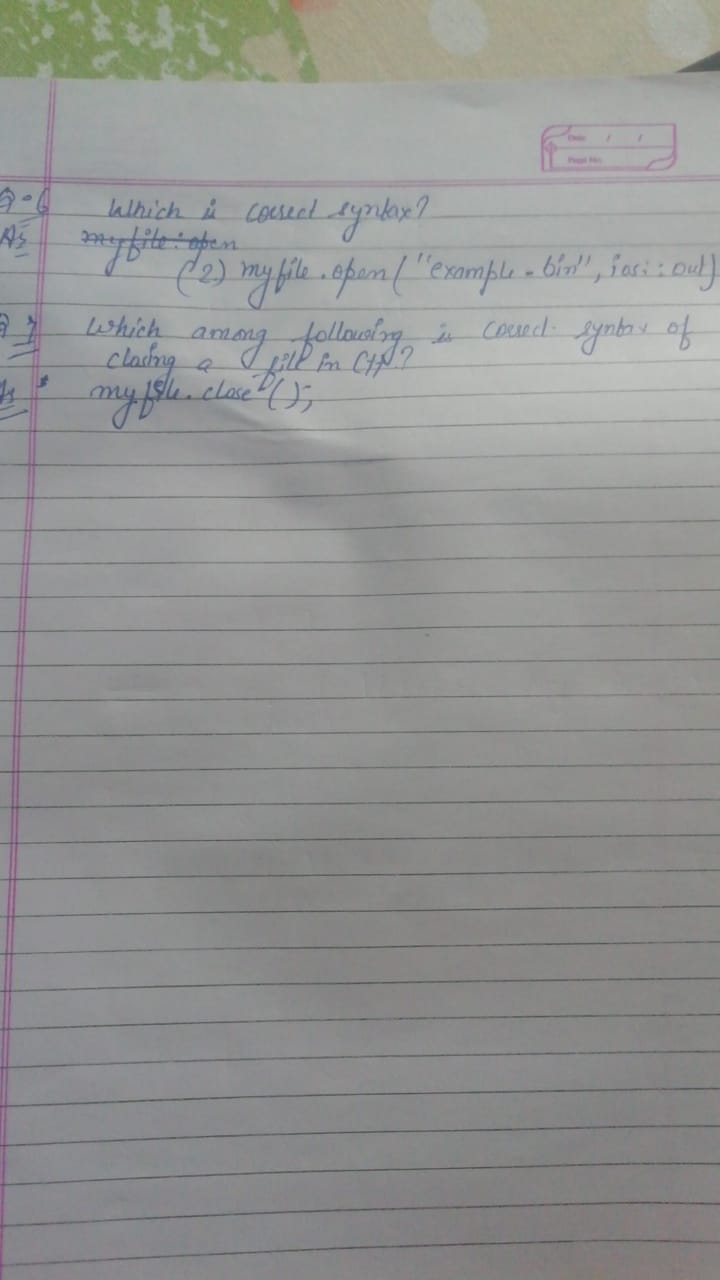 Date / /
Page No.
Q-6 Which is correct syntax?
As myfile:open
(2) myfile.open("example-bin", iosi:out)
Q 7 Which among following is correct syntax of
closing a file in C++?
As myfile.close();